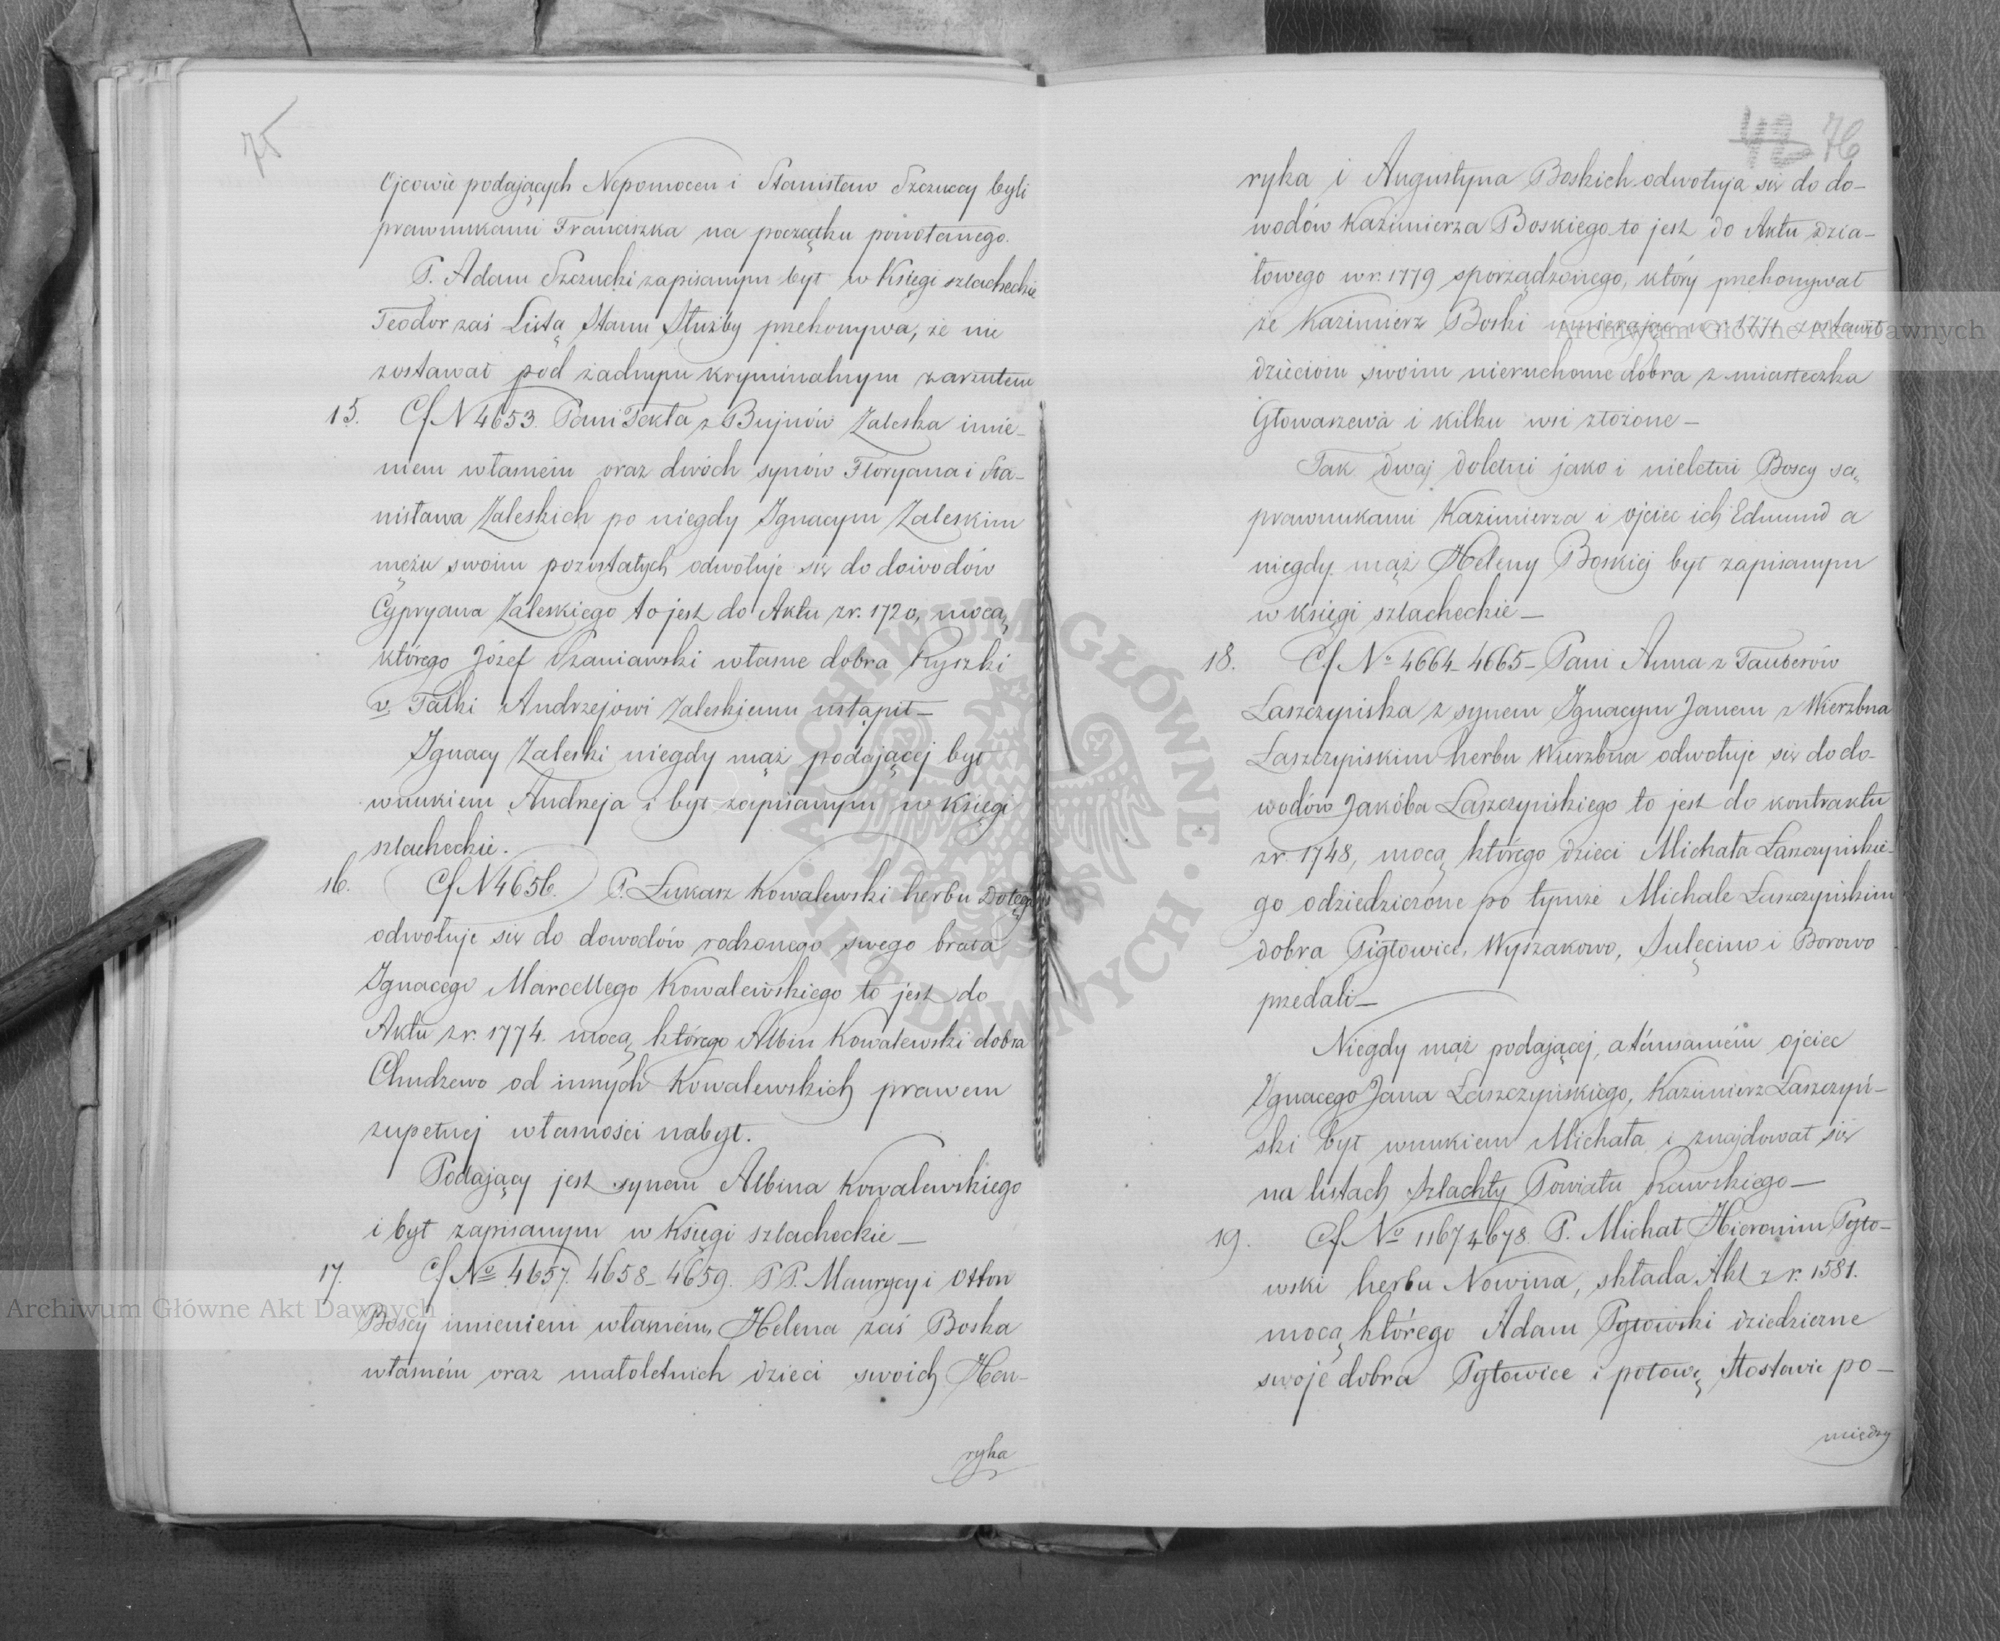 75
Ojcowie podających Nepomocen i Stanisław Szczuccy byli
prawnukami Franciszka na początku powołanego.
P. Adam Szczucki zapisanym był w Księgi szlacheckie
Teodor zaś Listą Stanu Służby przekonywa, że nie
zostawał pod żadnym kryminalnym zarzutem
15. Cf N 4653. Pani Tekla z Bujnów Zaleska imie-
niem własném oraz dwóch synów Floryana i Sta-
nisława Zaleskich po niegdy Ignacym Zaleskim
mężu swoim pozostałych odwołuje się do dowodów
Cypryana Zaleskiego to jest do Aktu z r. 1720, mocą
którego Józef Szaniawski własne dobra Ryszki
v. Talki Andrzejowi Zaleskiemu ustąpił—
Ignacy Zaleski niegdy mąż podającej był
wnukiem Andrzeja i był zapisanym w Księgi
szlacheckie.
16. Cf N 4656. P. Łukasz Kowalewski herbu Dołęga
odwołuje się do dowodów rodzonego swego brata
Ignacego Marcellego Kowalewskiego to jest do
Aktu z r. 1774. mocą którego Albin Kowalewski dobra
Chudzewo od innych Kowalewskich prawem
zupełnej własności nabył.
Podający jest synem Albina Kowalewskiego
i był zapisanym w Księgi szlacheckie—
17. Cf No 4657. 4658_4659. P P. Maurycy i Otton
Boscy imieniem własném, Helena zaś Boska
własném oraz małoletnich dzieci swoich Hen-
ryka
48 76
ryka i Augustyna Boskich odwołują się do do-
wodów Kazimierza Boskiego to jest do Aktu dzia-
łowego w r. 1779 sporządzonego, który przekonywał
że Kazimierz Boski umierając w r. 1771 zostawił
dzieciom swoim nieruchome dobra z miasteczka
Głowaszewa i kilku wsi złożone—
Tak dwaj doletni jako i nieletni Boscy są
prawnukami Kazimierza i ojciec ich Edmund a
niegdy mąż Heleny Boskiej był zapisanym
w księgi szlacheckie—
18. Cf No 4664_4665_ Pani Anna z Tauberów
Łaszczyńska z synem Ignacym Janem z Wierzbna
Łaszczyńskim herbu Wierzbna odwołuje się do do-
wodów Jakóba Łaszczyńskiego to jest do kontraktu
z r. 1748, mocą którego dzieci Michała Łaszczyńskie-
go odziedziczone po tymże Michale Łaszczyńskim
dobra Pigłowice, Wyszakowo, Sulęcino i Borowo
przedali—
Niegdy mąż podającej, a témsamém ojciec
Ignacego Jana Łaszczyńskiego, Kazimierz Łaszczyń-
ski był wnukiem Michała i znajdował się
na listach Szlachty Powiatu Rawskiego—
19. Cf No 1167 4678. P. Michał Hieronim Pgło-
wski herbu Nowina, składa Akt z r. 1581.
mocą którego Adam Pgłowski dziedziczne
swoje dobra Pgłowice i połowę Stostowic po-
między
Archiwum Główne Akt Dawnych
Archiwum Główne Akt Dawnych
ARCHIWUM GŁÓWNE AKT DAWNYCH